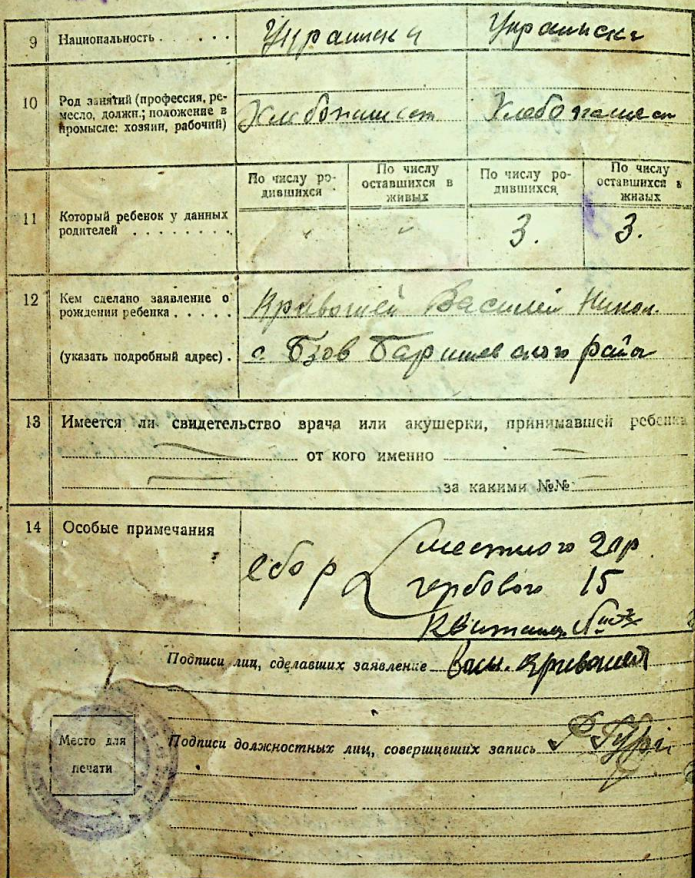 9 Национальность . . . . . Украинск Украинск
10 Род занятий (профессия, ре-
месло, должн.; положение в
промысле: хозяин, рабочий)
Хлебопашест Хлебопашест
По числу ро-
дившихся
По числу
оставшихся в
живых
По числу ро-
дившихся
По числу
оставшихся в
живых
11 Который ребенок у данных
родителей . . . . . . . . .
" " 3. 3.
12 Кем сделано заявление о
рождении ребенка . . . . .
Кривошей Василий Никол.
(указать подробный адрес) . с. Бзов Баришевского райо
13 Имеется ли свидетельство врача или акушерки, принимавшей ребенка
от кого именно
за какими №№
14 Особые примечания
сбор местного 20р
гербового 15
Квитанц №
Подписи лиц, сделавших заявление Вас. Кривошей
Место для
печати
Подписи должностных лиц, совершивших запись